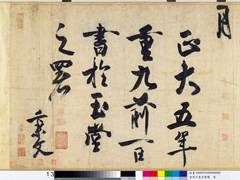 月
正大五年
重九前一日
書於玉堂
之署
秉文
13